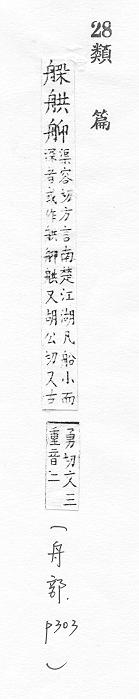 28 類篇
舼
渠容切方言南楚江湖凡船小而
深者或作舼又胡公切又古
勇切文三
重音二
(舟部. p303)